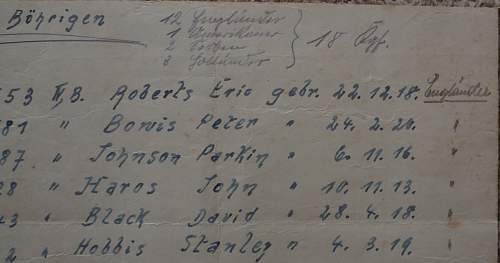 Böhrigen
12 Engländer
1 Amerikaner
2 Serben
3 Holländer
18 Kgf.
53 IV,B. Roberts Eric gebr. 22.12.18. Engländer
81 " Bowis Peter " 24. 2. 20. "
87 " Johnson Parkin " 6. 11. 16. "
28 " Haros John " 10. 11. 13. "
43 " Black David " 28. 4. 18. "
2 " Hobbis Stanley " 4. 3. 19. "